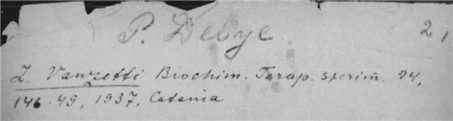 P. Debye. 2,
L. Vanzetti Biochim. Terap. sperim. 24,
146-49, 1937, Catania